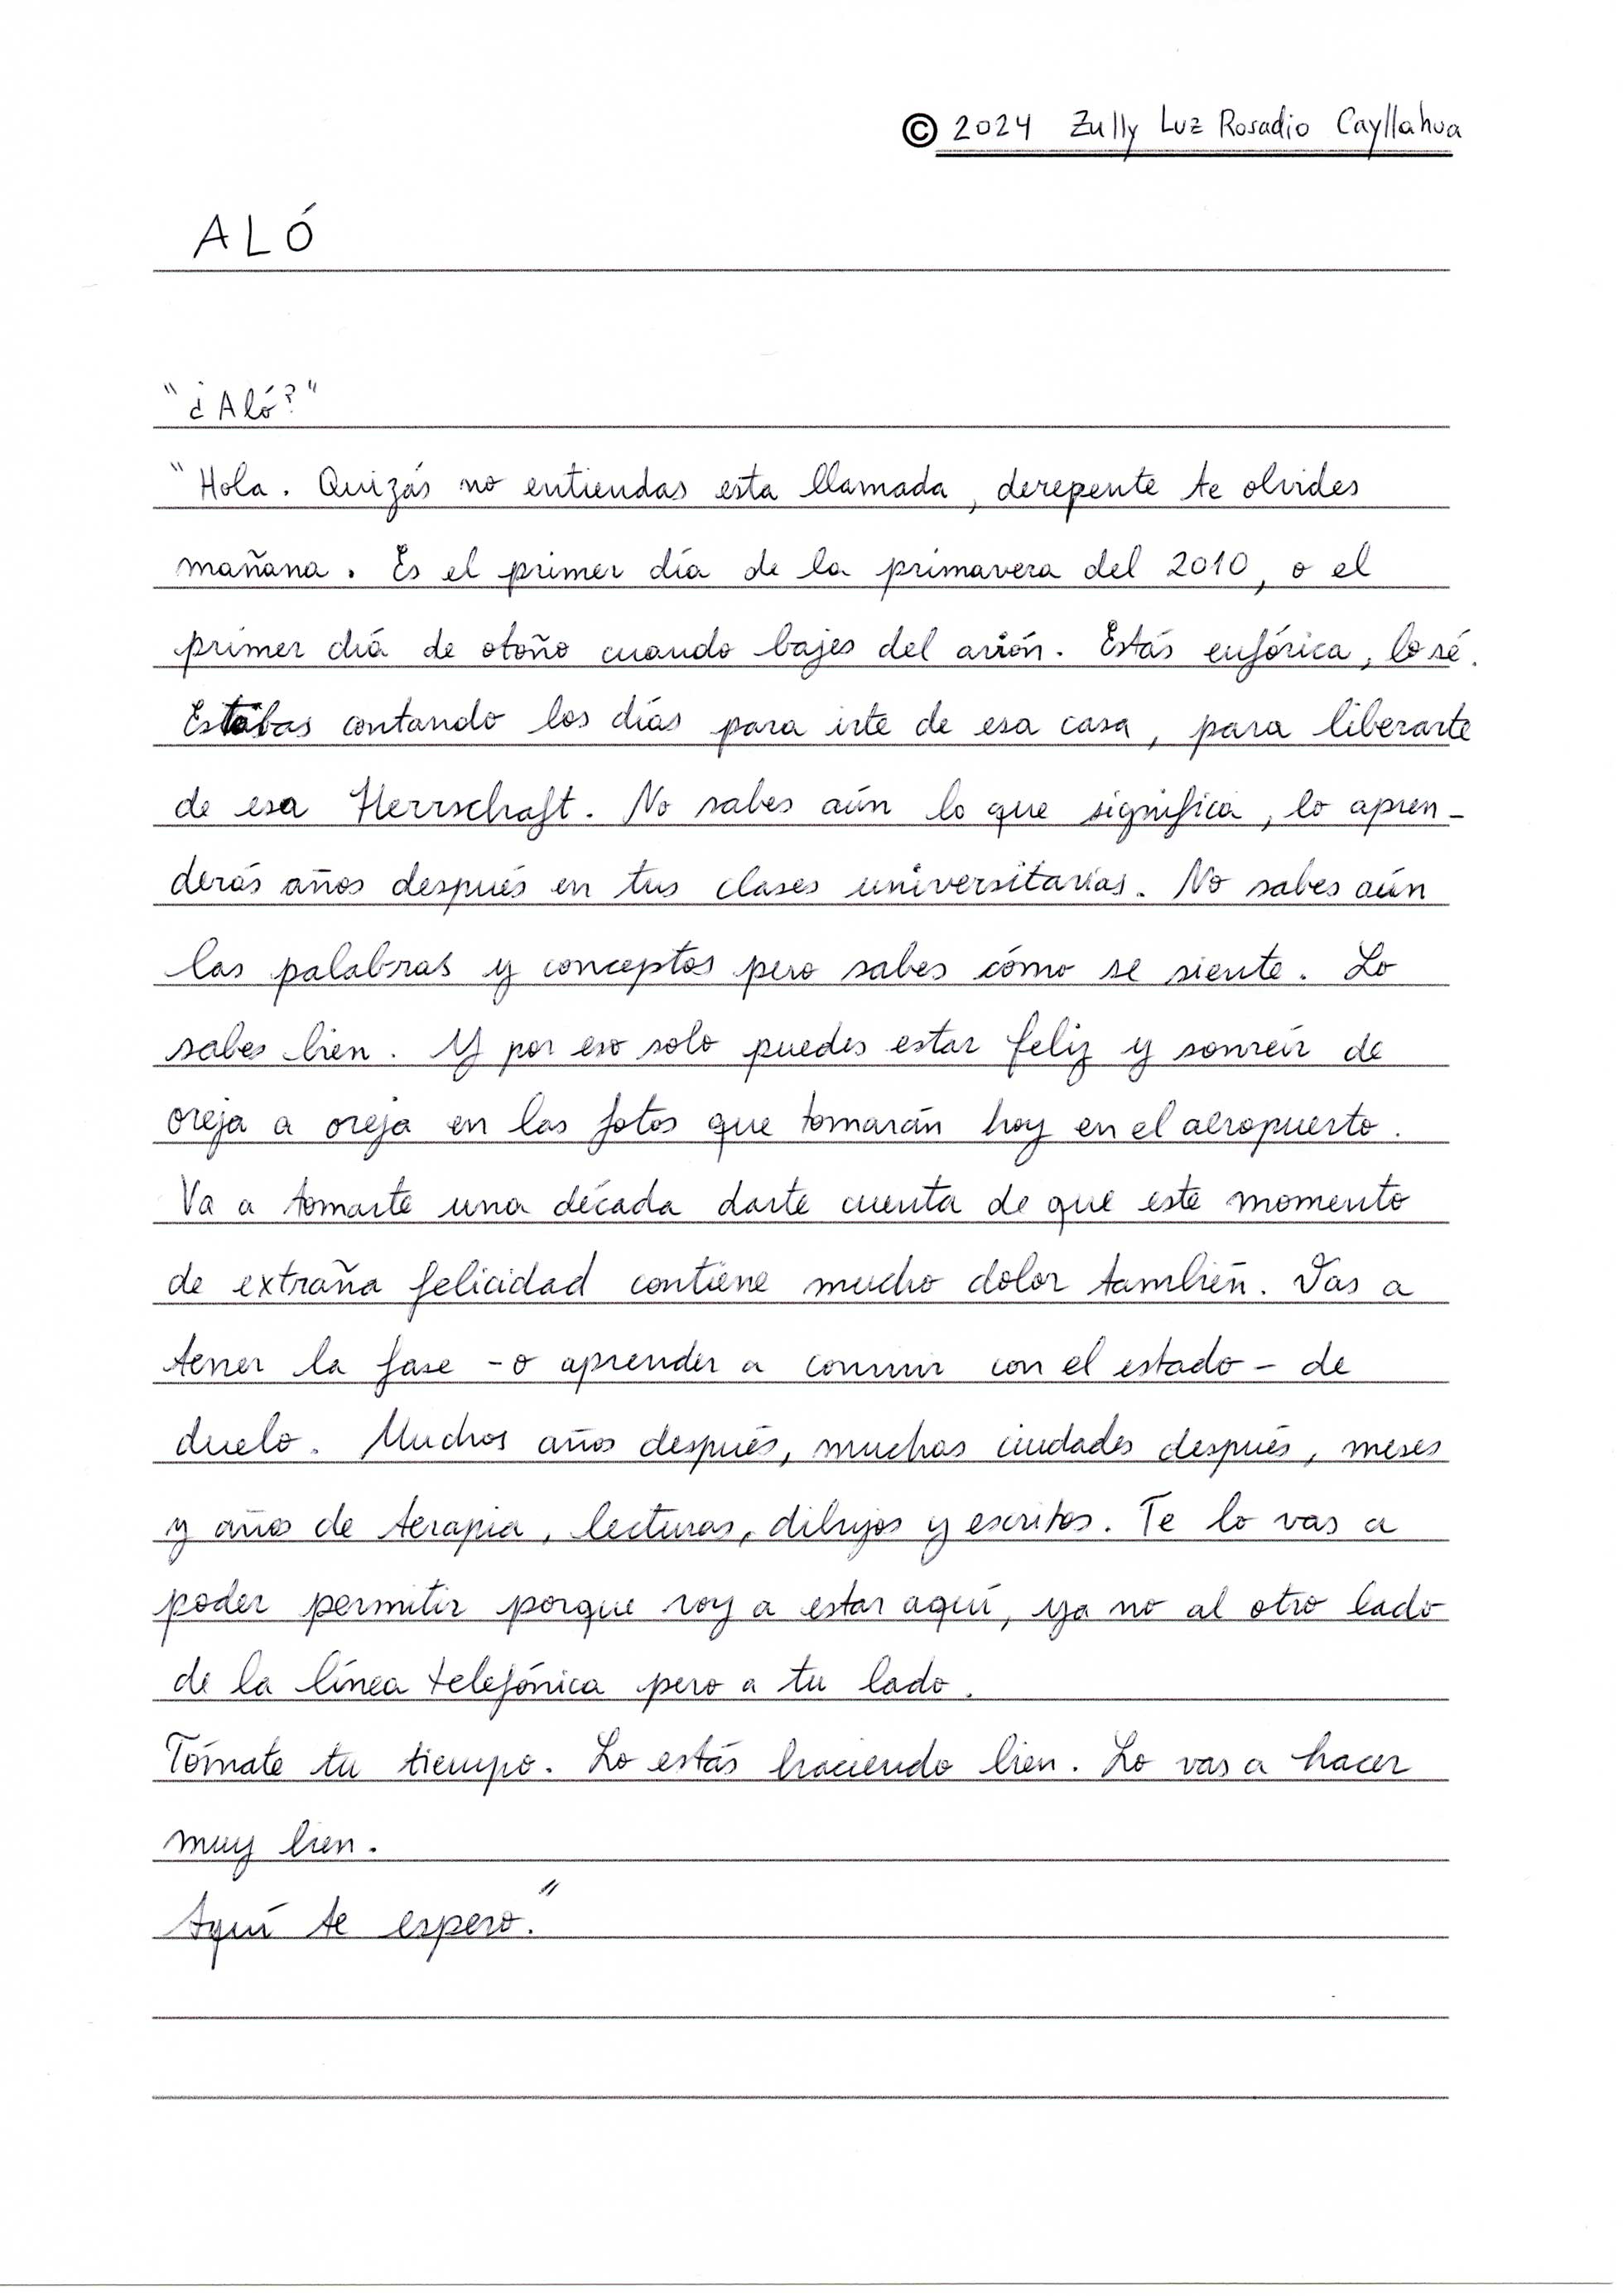 © 2024 Zully Luz Rosadio Cayllahua
ALÓ
"¿Aló?"
"Hola. Quizás no entiendas esta llamada, derepente te olvides
mañana. Es el primer día de la primavera del 2010, o el
primer día de otoño cuando bajes del avión. Estás eufórica, lo sé.
Estabas contando los días para irte de esa casa, para liberarte
de esa Herrschaft. No sabes aún lo que significa, lo apren-
derás años después en tus clases universitarias. No sabes aún
las palabras y conceptos pero sabes cómo se siente. Lo
sabes bien. Y por eso solo puedes estar feliz y sonreír de
oreja a oreja en las fotos que tomarán hoy en el aeropuerto.
Va a tomarte una década darte cuenta de que este momento
de extraña felicidad contiene mucho dolor también. Vas a
tener la fase - o aprender a convivir con el estado - de
duelo. Muchos años después, muchas ciudades después, meses
y años de terapia, lecturas, dibujos y escritos. Te lo vas a
poder permitir porque voy a estar aquí, ya no al otro lado
de la línea telefónica pero a tu lado.
Tómate tu tiempo. Lo estás haciendo bien. Lo vas a hacer
muy bien.
Aquí te espero."